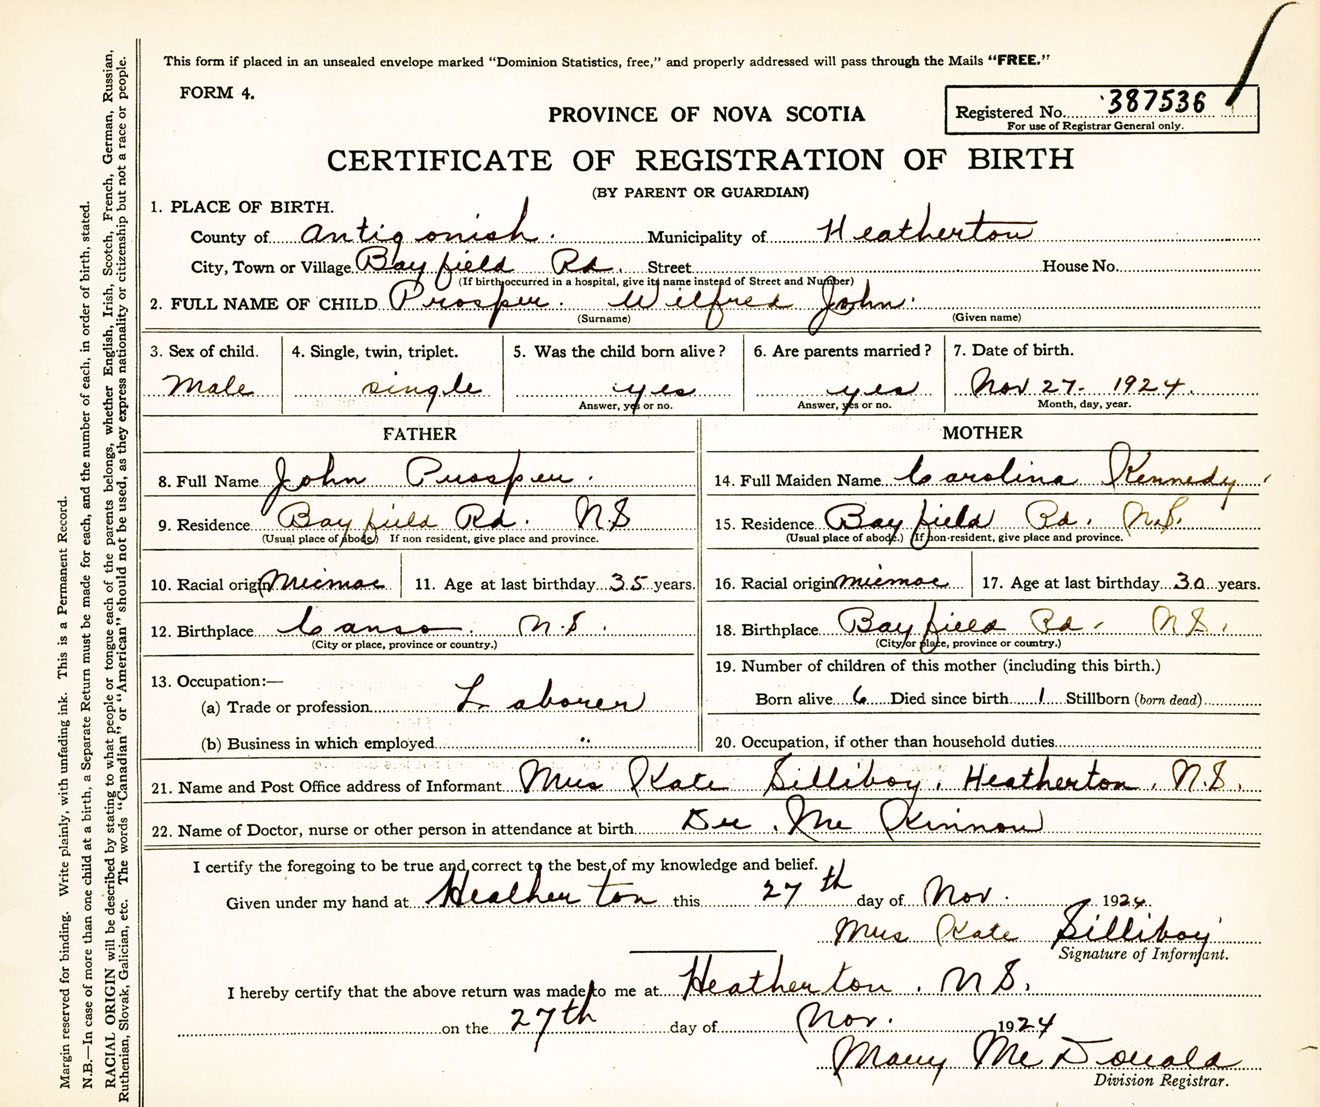 This form if placed in an unsealed envelope marked "Dominion Statistics, free," and properly addressed will pass through the Mails "FREE."
FORM 4.
PROVINCE OF NOVA SCOTIA
Registered No. 387536
For use of Registrar General only.
CERTIFICATE OF REGISTRATION OF BIRTH
(BY PARENT OR GUARDIAN)
1. PLACE OF BIRTH.
County of Antigonish. Municipality of Heatherton
City, Town or Village Bayfield Rd. Street House No.
(If birth occurred in a hospital, give its name instead of Street and Number)
2. FULL NAME OF CHILD Prosper. Wilfred John.
(Surname) (Given name)
3. Sex of child. 4. Single, twin, triplet. 5. Was the child born alive? 6. Are parents married? 7. Date of birth.
Male single yes yes Nov 27. 1924.
Answer, yes or no. Answer, yes or no. Month, day, year.
FATHER MOTHER
8. Full Name John Prosper. 14. Full Maiden Name Carolina Kennedy
9. Residence Bayfield Rd. N.S 15. Residence Bayfield Rd. N.S.
(Usual place of abode) If non resident, give place and province. (Usual place of abode.) (If non-resident, give place and province.
10. Racial origin Micmac 11. Age at last birthday 35 years. 16. Racial origin Micmac 17. Age at last birthday 30 years.
12. Birthplace Canso. N.S. 18. Birthplace Bayfield Rd. N.S.
(City or place, province or country.) (City or place, province or country.)
19. Number of children of this mother (including this birth.)
13. Occupation:—
(a) Trade or profession Laborer Born alive 6 Died since birth 1 Stillborn (born dead)
(b) Business in which employed " 20. Occupation, if other than household duties
21. Name and Post Office address of Informant Mrs Kate Silliboy, Heatherton, N.S.
22. Name of Doctor, nurse or other person in attendance at birth Dr. Mc Kinnon
I certify the foregoing to be true and correct to the best of my knowledge and belief.
Given under my hand at Heatherton this 27th day of Nov. 1924.
Mrs Kate Silliboy
Signature of Informant.
I hereby certify that the above return was made to me at Heatherton. N S.
on the 27th day of Nov. 1924
Mary McDonald
Division Registrar.
Margin reserved for binding. Write plainly, with unfading ink. This is a Permanent Record.
N.B.—In case of more than one child at a birth, a Separate Return must be made for each, and the number of each, in order of birth, stated.
RACIAL ORIGIN will be described by stating to what people or tongue each of the parents belongs, whether English, Irish, Scotch, French, German, Russian,
Ruthenian, Slovak, Galician, etc. The words "Canadian" or "American" should not be used, as they express nationality or citizenship but not a race or people.